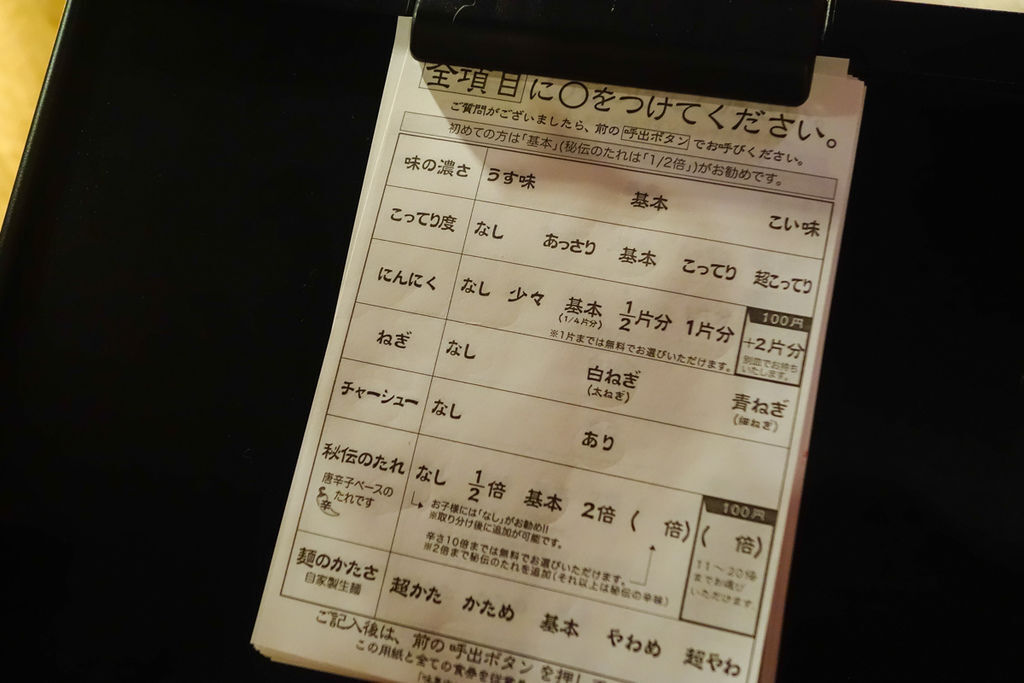 全項目に○をつけてください。
ご質問がございましたら、前の呼出ボタンでお呼びください。
初めての方は「基本」(秘伝のたれは「1/2倍」)がお勧めです。
味の濃さ うす味 基本 こい味
こってり度 なし あっさり 基本 こってり 超こってり
にんにく なし 少々 基本 1/2片分 1片分
(1/4片分)
※1片までは無料でお選びいただけます。
100円
+2片分
別皿でお持ち
いたします。
ねぎ なし 白ねぎ 青ねぎ
(太ねぎ) (細ねぎ)
チャーシュー なし あり
秘伝のたれ なし 1/2倍 基本 2倍 ( 倍)
唐辛子ベースの
たれです
辛
お子様には「なし」がお勧め!!
※取り分け後に追加が可能です。
辛さ10倍までは無料でお選びいただけます。
※2倍まで秘伝のたれを追加(それ以上は秘伝の辛味)
100円
( 倍)
11〜20倍
までお選び
いただけます
麺のかたさ 超かた かため 基本 やわめ 超やわ
自家製生麺
ご記入後は、前の呼出ボタンを押して
この用紙と全ての食券を従業員